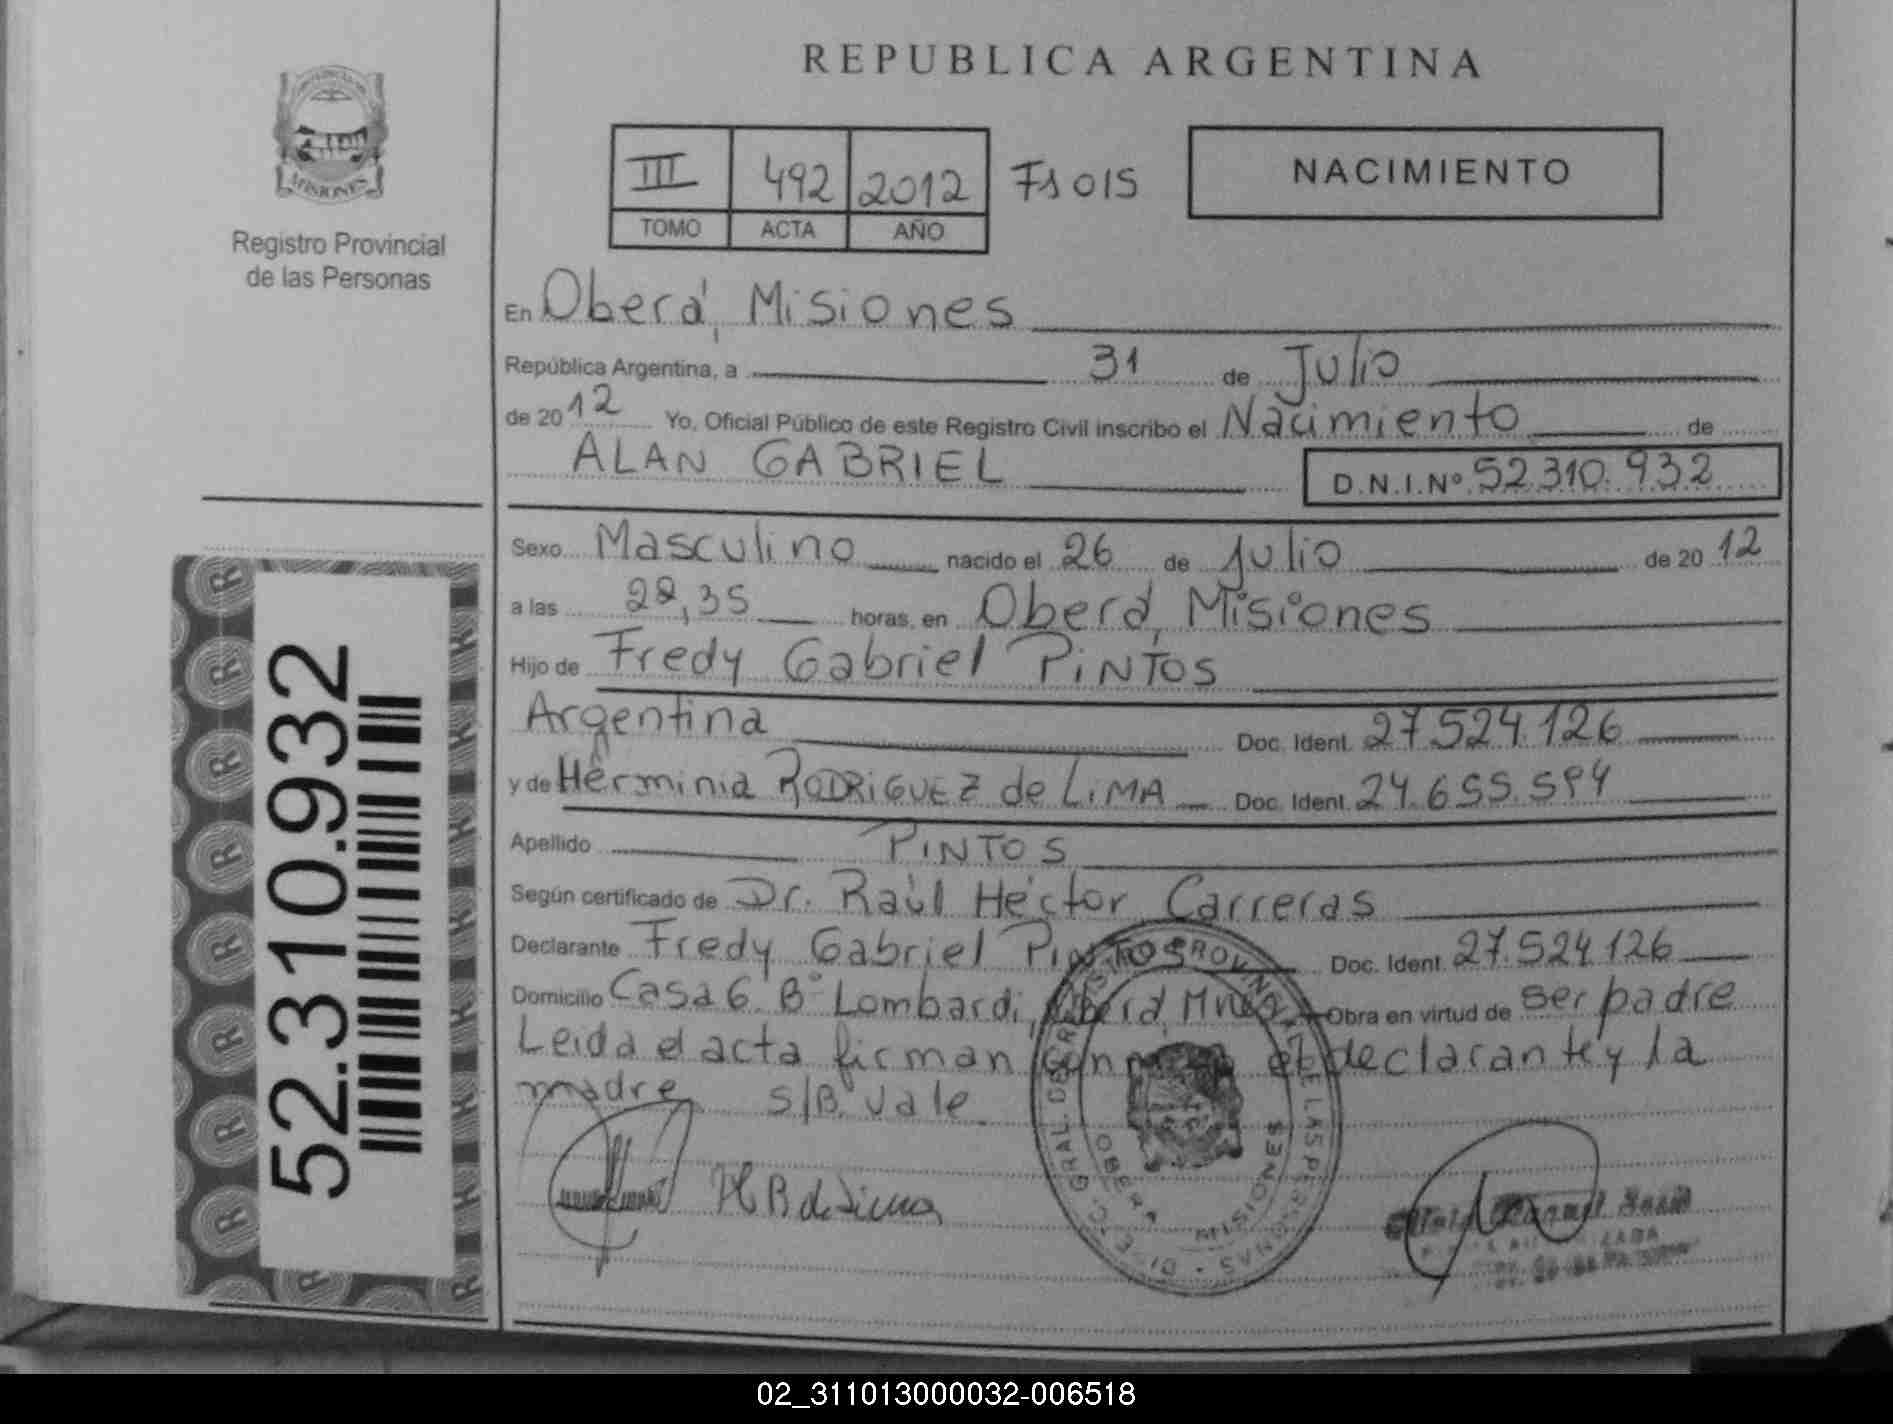 REPUBLICA ARGENTINA
MISIONES
Registro Provincial
de las Personas
III 492 2012 Fs 015
TOMO ACTA AÑO
NACIMIENTO
En Oberá, Misiones
República Argentina, a 31 de Julio
de 2012 Yo, Oficial Público de este Registro Civil inscribo el Nacimiento de
ALAN GABRIEL D.N.I.Nº 52.310.932
Sexo Masculino nacido el 26 de Julio de 2012
a las horas, en Oberá, Misiones
Hijo de Fredy Gabriel PINTOS
Argentina Doc. Ident. 27.524.126
y de Herminia RODRIGUEZ de LIMA Doc. Ident. 24.655.594
Apellido PINTOS
Según certificado de Dr. Raúl Héctor Carreras
Declarante Fredy Gabriel PINTOS Doc. Ident. 27.524.126
Domicilio Casa 6 Bº Lombardi, Oberá, Mnes. Obra en virtud de ser padre
Leida el acta firman conmigo el declarante y la
madre S/B. Vale
52.310.932
OBERA MISIONES
02_311013000032-006518